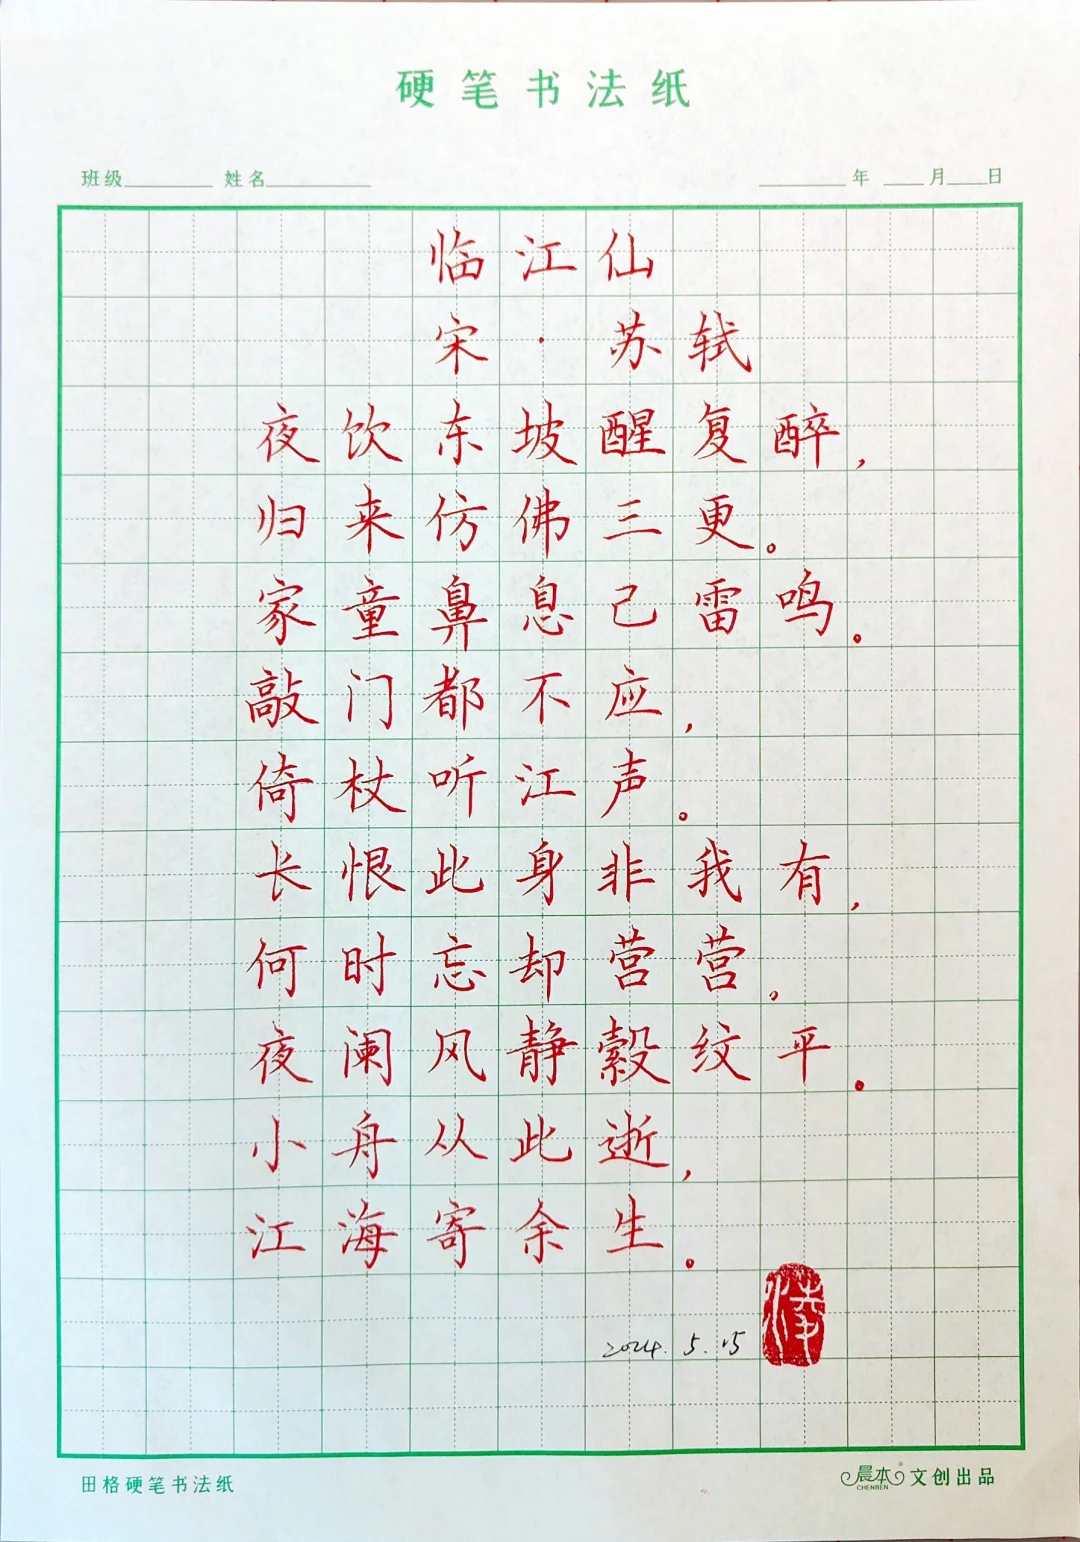 硬笔书法纸
班级 姓名 年 月 日
临江仙
宋·苏轼
夜饮东坡醒复醉,
归来仿佛三更。
家童鼻息已雷鸣。
敲门都不应,
倚杖听江声。
长恨此身非我有,
何时忘却营营。
夜阑风静縠纹平。
小舟从此逝,
江海寄余生。
2024.5.15
田格硬笔书法纸
晨本 文创出品
CHENBEN